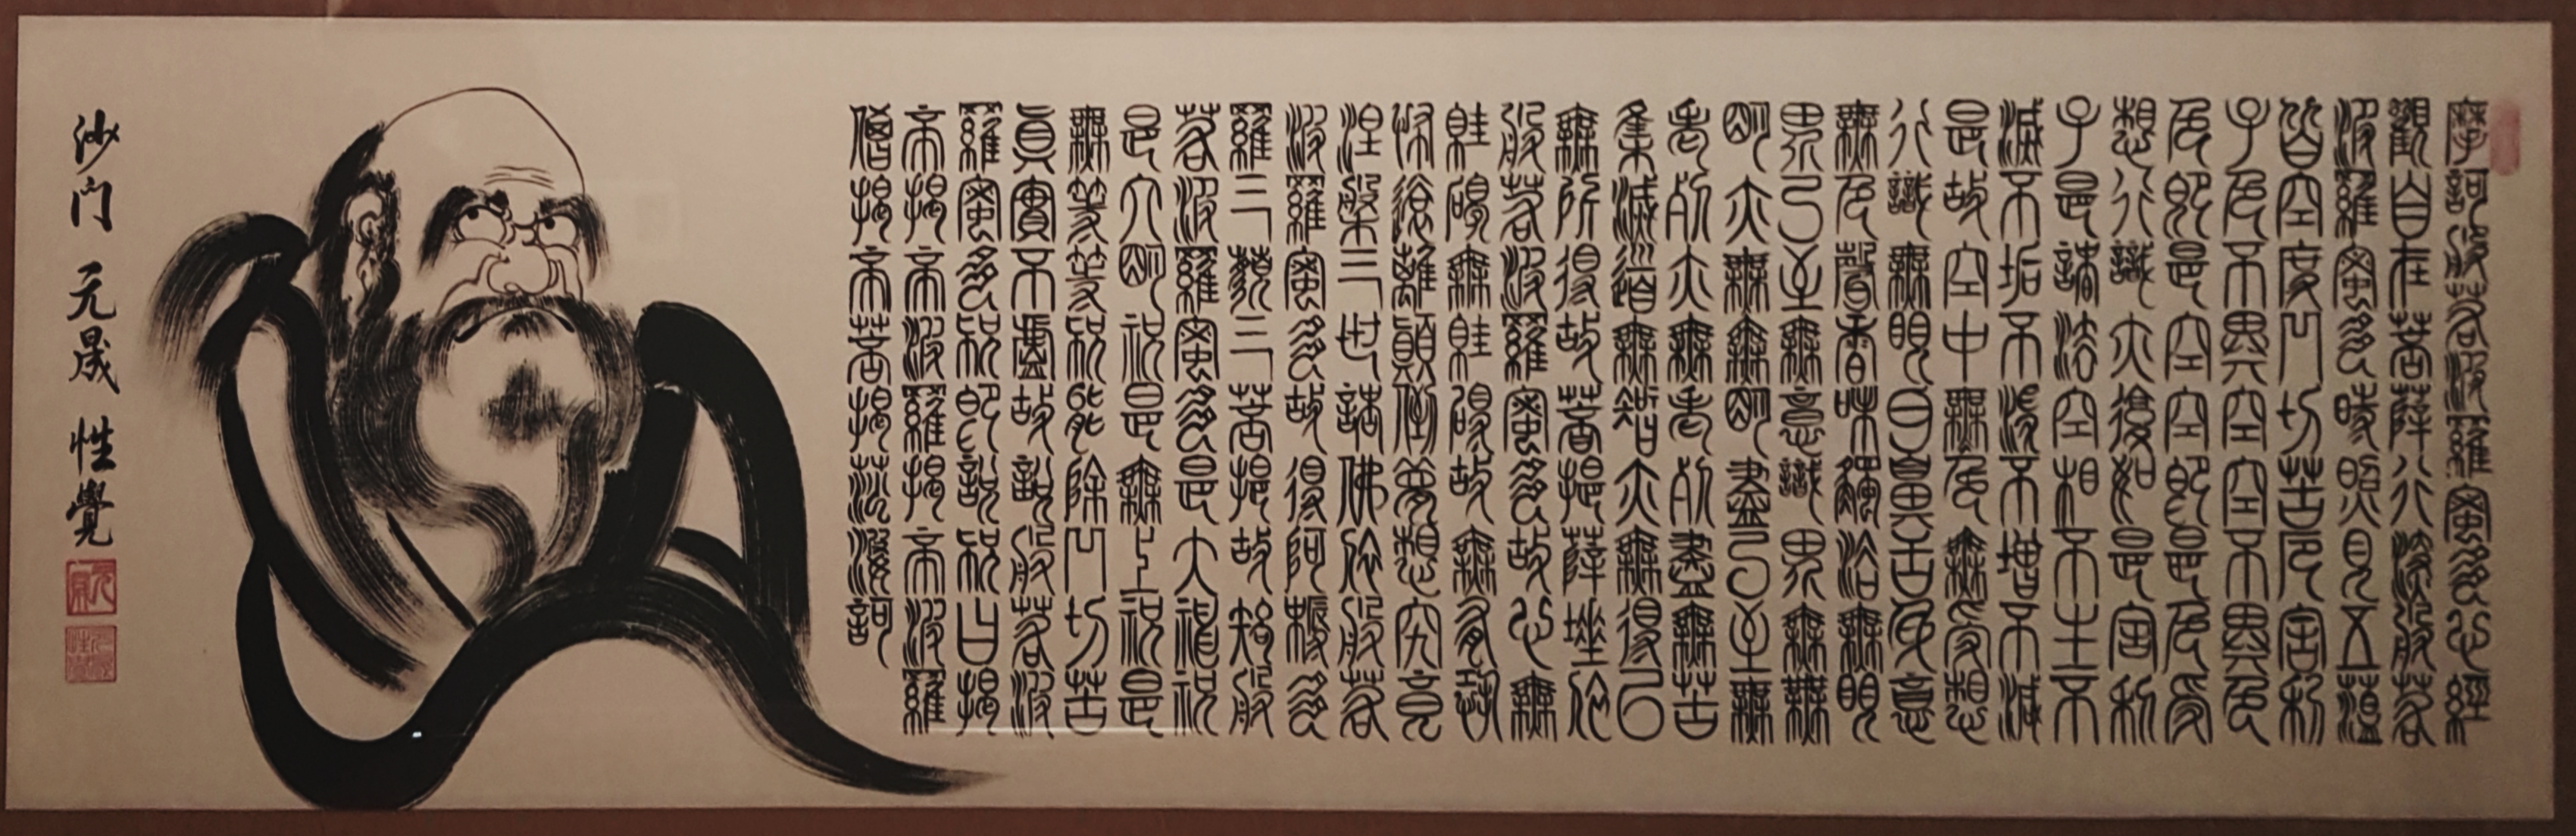 摩訶般若波羅蜜多心經
觀自在菩薩行深般若
波羅蜜多時照見五蘊
皆空度一切苦厄舍利
子色不異空空不異色
色即是空空即是色受
想行識亦復如是舍利
子是諸法空相不生不
滅不垢不淨不增不減
是故空中無色無受想
行識無眼耳鼻舌身意
無色聲香味觸法無眼
界乃至無意識界無無
明亦無無明盡乃至無
老死亦無老死盡無苦
集滅道無智亦無得以
無所得故菩提薩埵依
般若波羅蜜多故心無
罣礙無罣礙故無有恐
怖遠離顛倒夢想究竟
涅槃三世諸佛依般若
波羅蜜多故得阿耨多
羅三藐三菩提故知般
若波羅蜜多是大神呪
是大明呪是無上呪是
無等等呪能除一切苦
眞實不虛故說般若波
羅蜜多呪即說呪曰揭
帝揭帝波羅揭帝波羅
僧揭帝菩提莎婆訶
沙門 元晟 性覺